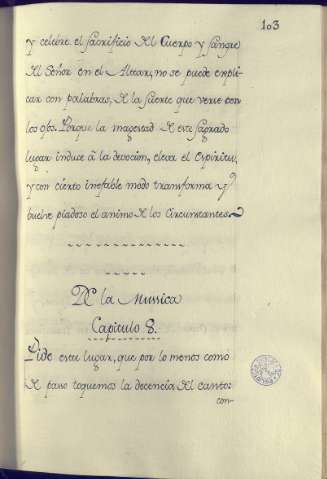 103
y celebre el sacrificio del Cuerpo y sangre
del Señor en el Altar, no se puede expli-
car con palabras, de la suerte que verse con
los ojos. Porque la magestad de este sagrado
lugar induce â la devocion, eleva el Espiritu,
y con cierto inefable modo transforma y
buelve piadoso el animo de los Circunstantes
De la Mussica
Capitulo 8.
Pide este lugar, que por lo menos como
de paso toquemos la decencia del canto:
con-